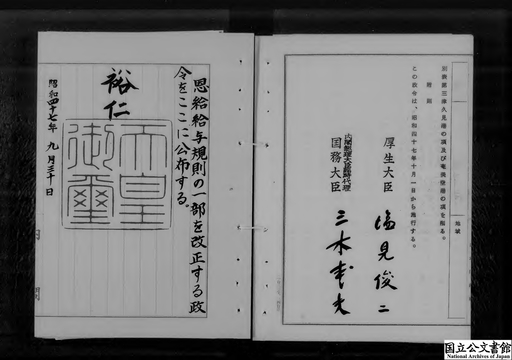 別表第三津久見港の項及び奄美空港の項を削る。
附則
この政令は、昭和四十七年十月一日から施行する。
厚生大臣 塩見俊二
内閣総理大臣臨時代理
国務大臣 三木武夫
恩給給与規則の一部を改正する政
令をここに公布する。
裕仁
天皇
御璽
昭和四十七年九月三十日
国立公文書館
National Archives of Japan